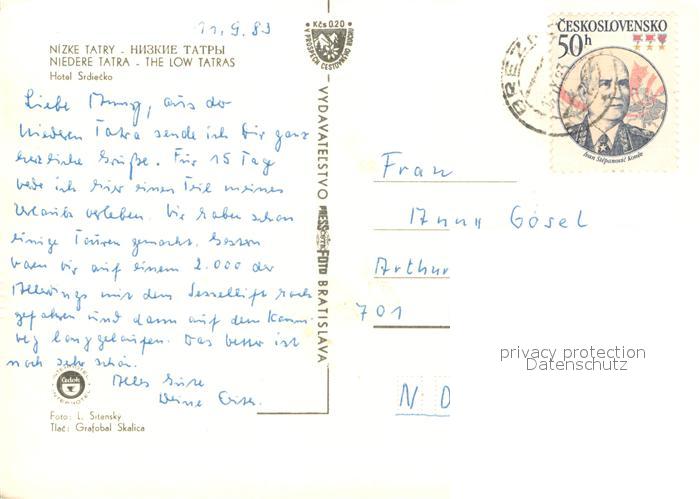 11.9.83
NÍZKE TATRY - НИЗКИЕ ТАТРЫ
NIEDERE TATRA - THE LOW TATRAS
Hotel Srdiečko
Liebe Anny, aus der
Niederen Tatra sende ich Dir ganz
herzliche Grüße. Für 15 Tage
werde ich hier einen Teil meines
Urlaubs verleben. Wir haben schon
einige Touren gemacht. Gestern
waren wir auf einem 2.000 der
Allerdings mit dem Sessellift hoch
gefahren und dann auf dem Kamm-
weg langgelaufen. Das Wetter ist
noch sehr schön.
Alles Gute
Deine
Čedok
INTERHOTEL
Foto: L. Sitenský
Tlač: Grafobal Skalica
Kčs 0.20
V PROSPECH CESTOVNÉHO RUCHU
VYDAVATEĽSTVO PRESSFOTO BRATISLAVA
ČESKOSLOVENSKO
50h
Ivan Štěpanovič Koněv
BREZ
Frau
Anny Gösel
Arthur
701
privacy protection
Datenschutz